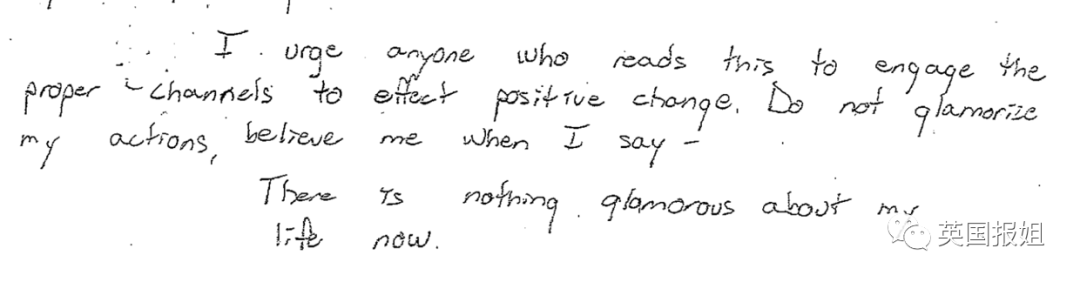 I urge anyone who reads this to engage the
proper channels to effect positive change. Do not glamorize
my actions, believe me when I say -
There is nothing glamorous about my
life now.
英国报姐